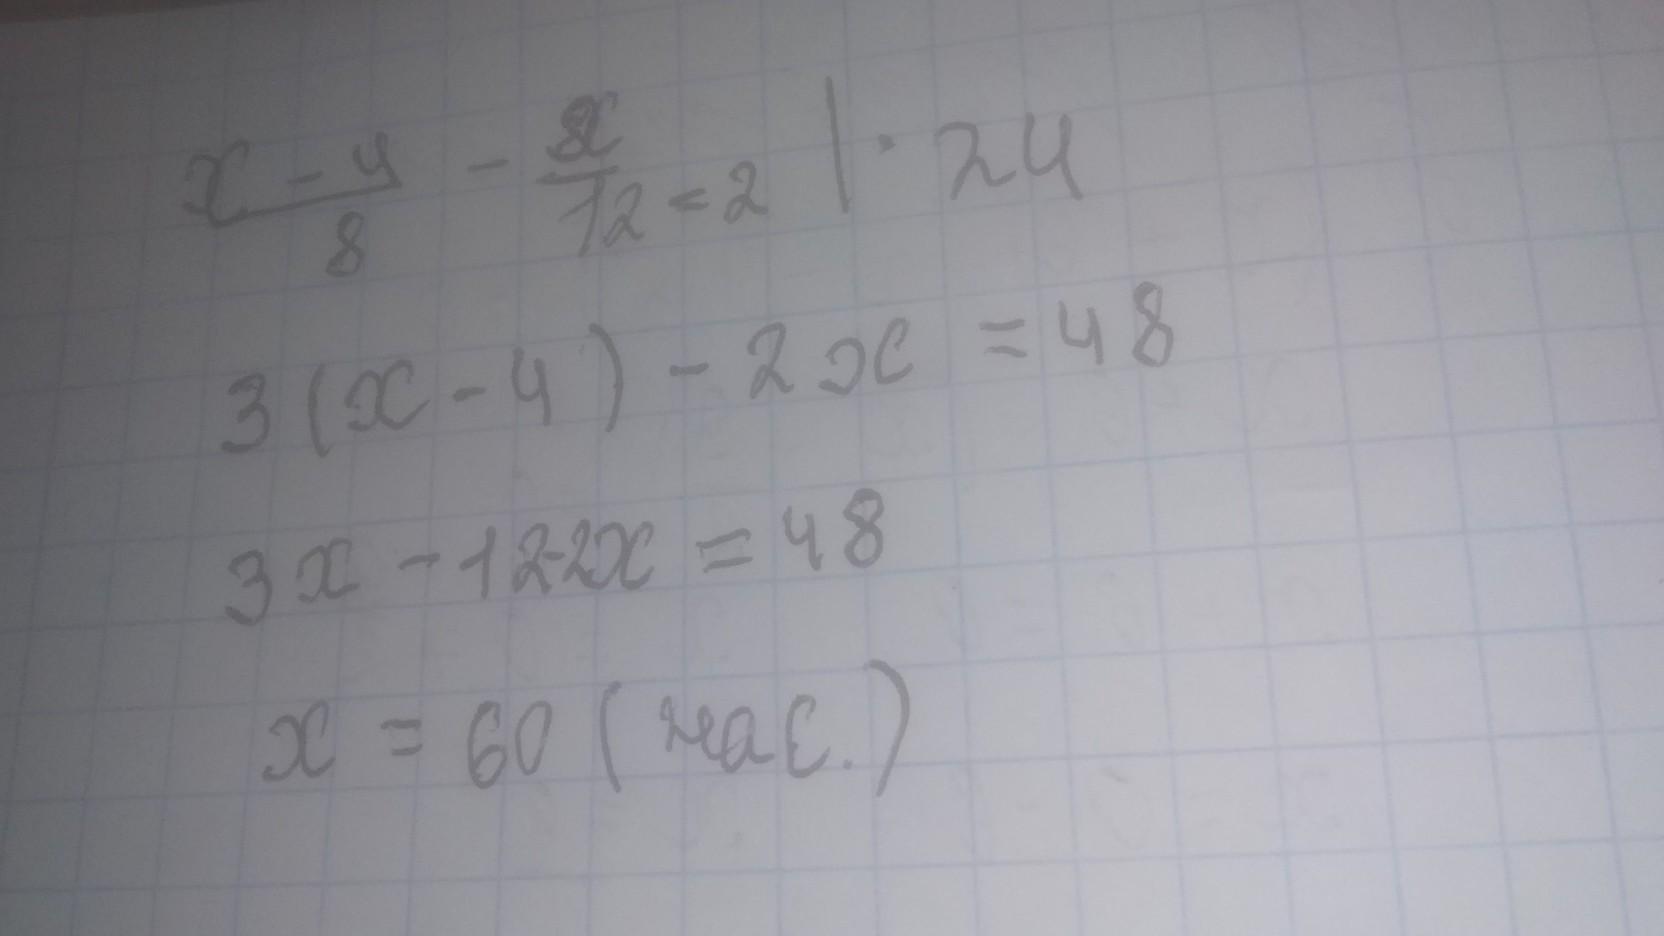 x - 4 / 8 - x / 12 = 2 | · 24
3(x - 4) - 2x = 48
3x - 12 - 2x = 48
x = 60 (час.)